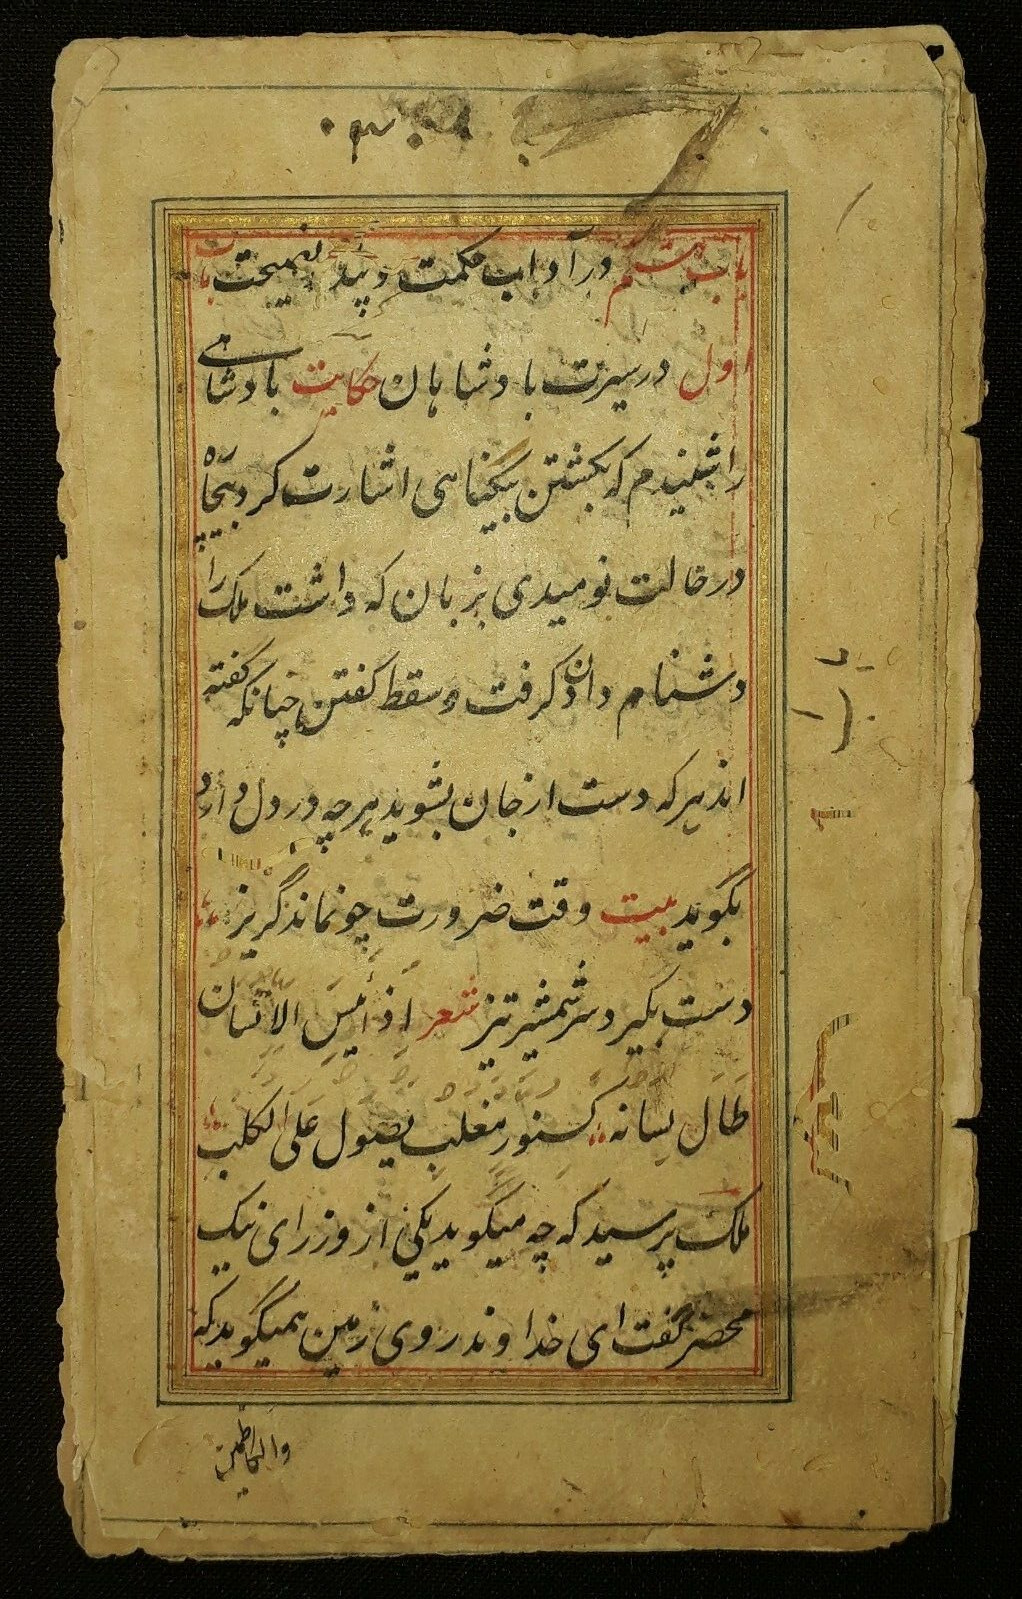 باب هشتم در آداب حکمت و پند و نصیحت باب
اول در سیرت بادشاهان حکایت بادشاهی
را شنیدم که بکشتن بیگناهی اشارت کرد بیچاره
در حالت نومیدی بزبان که داشت ملک را
دشنام دادن گرفت و سقط گفتن چنانکه گفته
اند هر که دست از جان بشوید هرچه در دل دارد
بگوید بیت وقت ضرورت چو نماند گریز
دست بگیرد سر شمشیر تیز شعر اذا أیس الانسان
طال لسانه کسنور مغلب یصول علی الکلب
ملک پرسید که چه میگوید یکی از وزرای نیک
محضر گفت ای خداوند روی زمین همیگوید که
والکاظمین